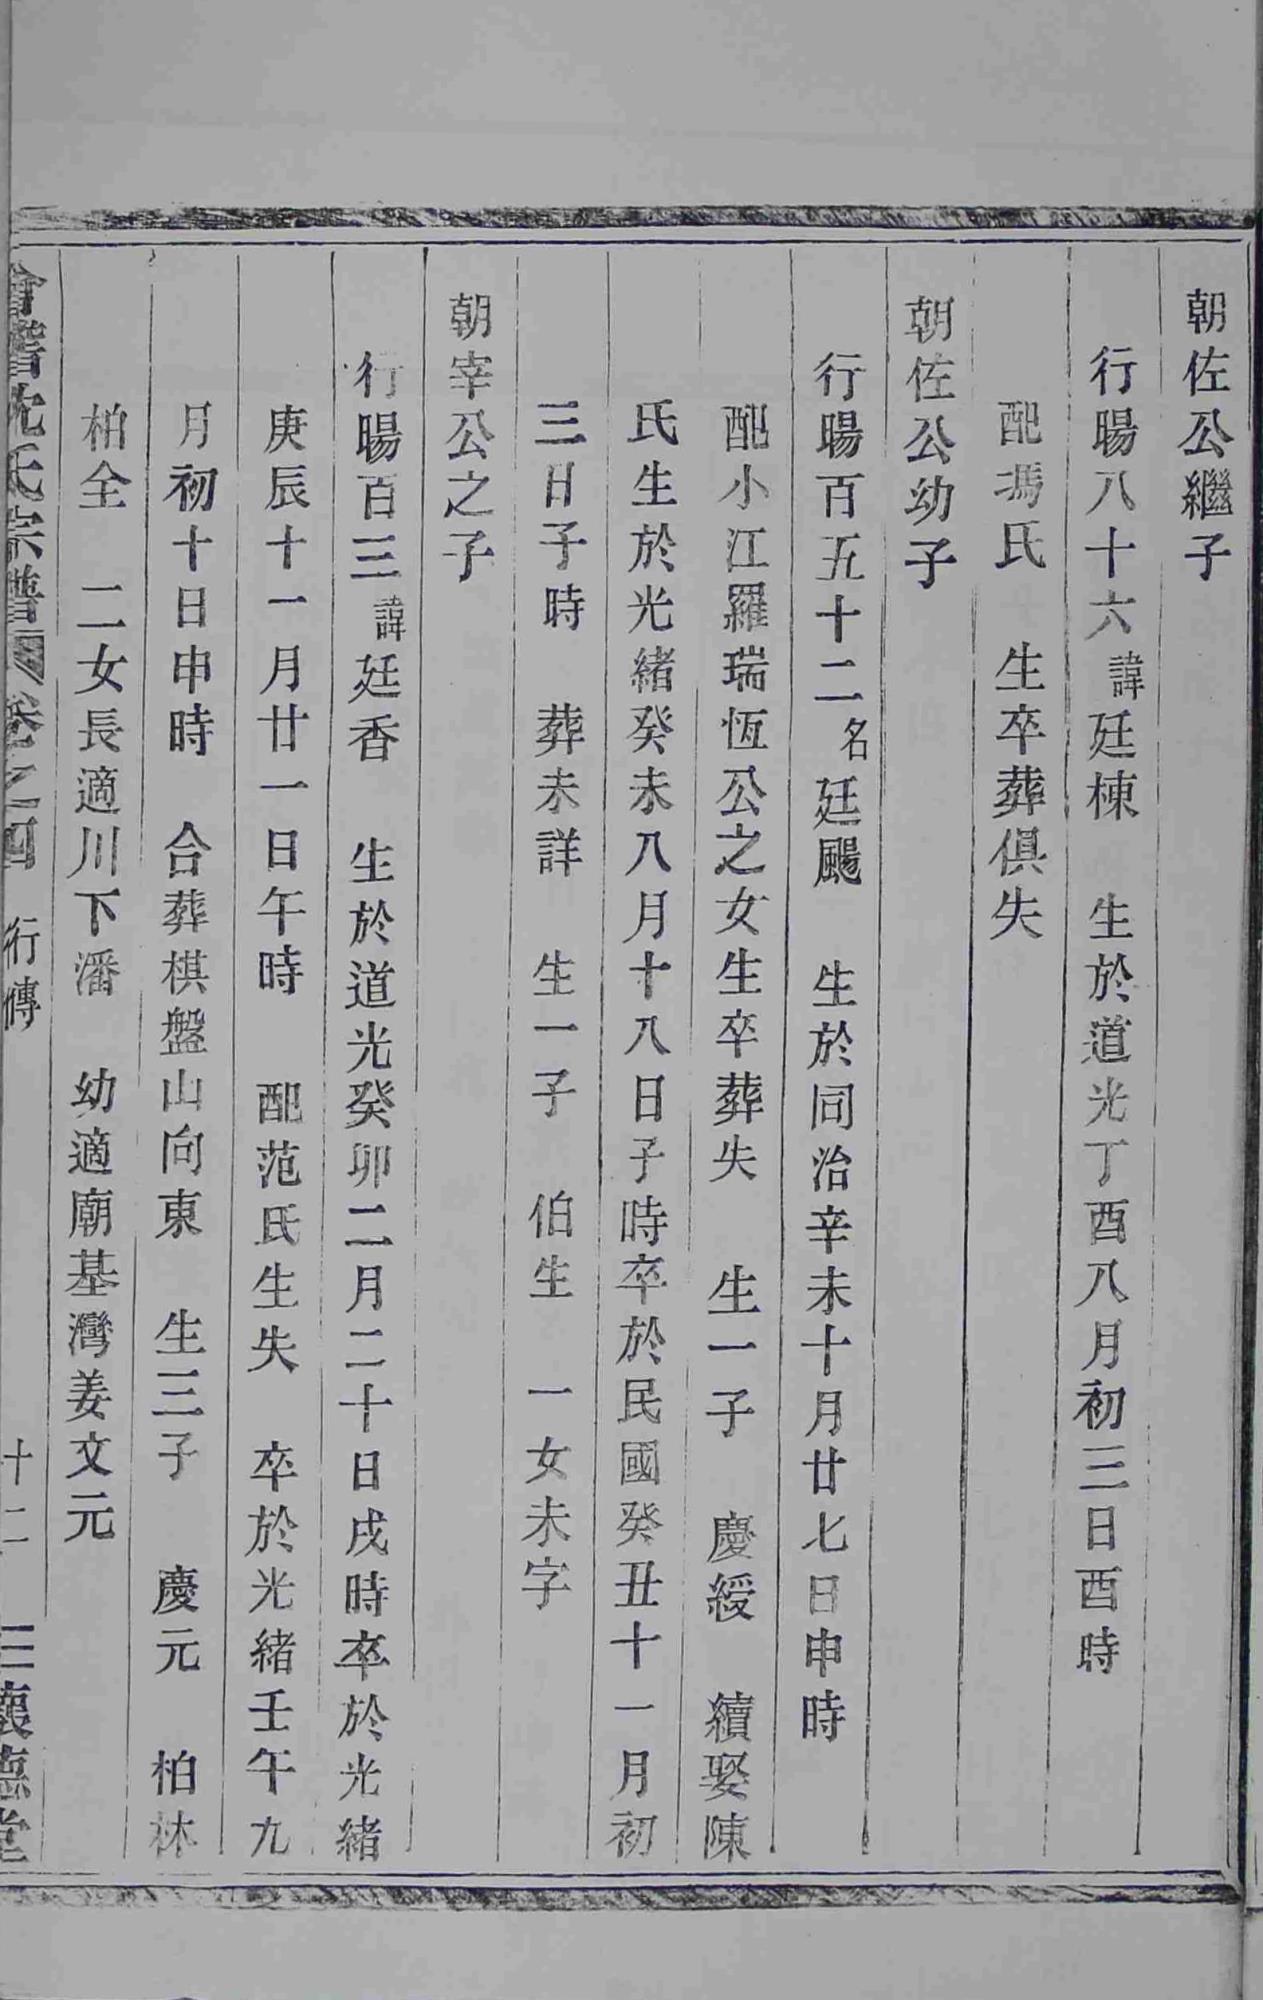 朝佐公繼子
行暘八十六諱廷棟　生於道光丁酉八月初三日酉時
配馮氏　生卒葬俱失
朝佐公幼子
行暘百五十二名廷颺　生於同治辛未十月廿七日申時
配小江羅瑞恆公之女生卒葬失　生一子　慶綬　續娶陳
氏生於光緒癸未八月十八日子時卒於民國癸丑十一月初
三日子時　葬未詳　生一子　伯生　一女未字
朝宰公之子
行暘百三諱廷香　生於道光癸卯二月二十日戌時卒於光緒
庚辰十一月廿一日午時　配范氏生失　卒於光緒壬午九
月初十日申時　合葬棋盤山向東　生三子　慶元　柏林
柏全　二女長適川下潘　幼適廟基灣姜文元
會稽沈氏宗譜　卷之四　行傳　十二　三懷德堂